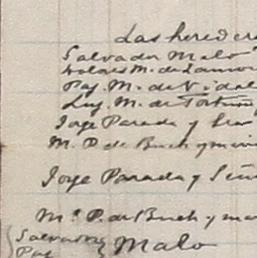 Las hered
Salvador Malo
Dolores M. de
Paz M. de Vidal
Luz M. de
Jorge Parada y
M. P. de Buch y
Jorge Parada y
Mª P. de Buch y
Salvador Malo
Paz